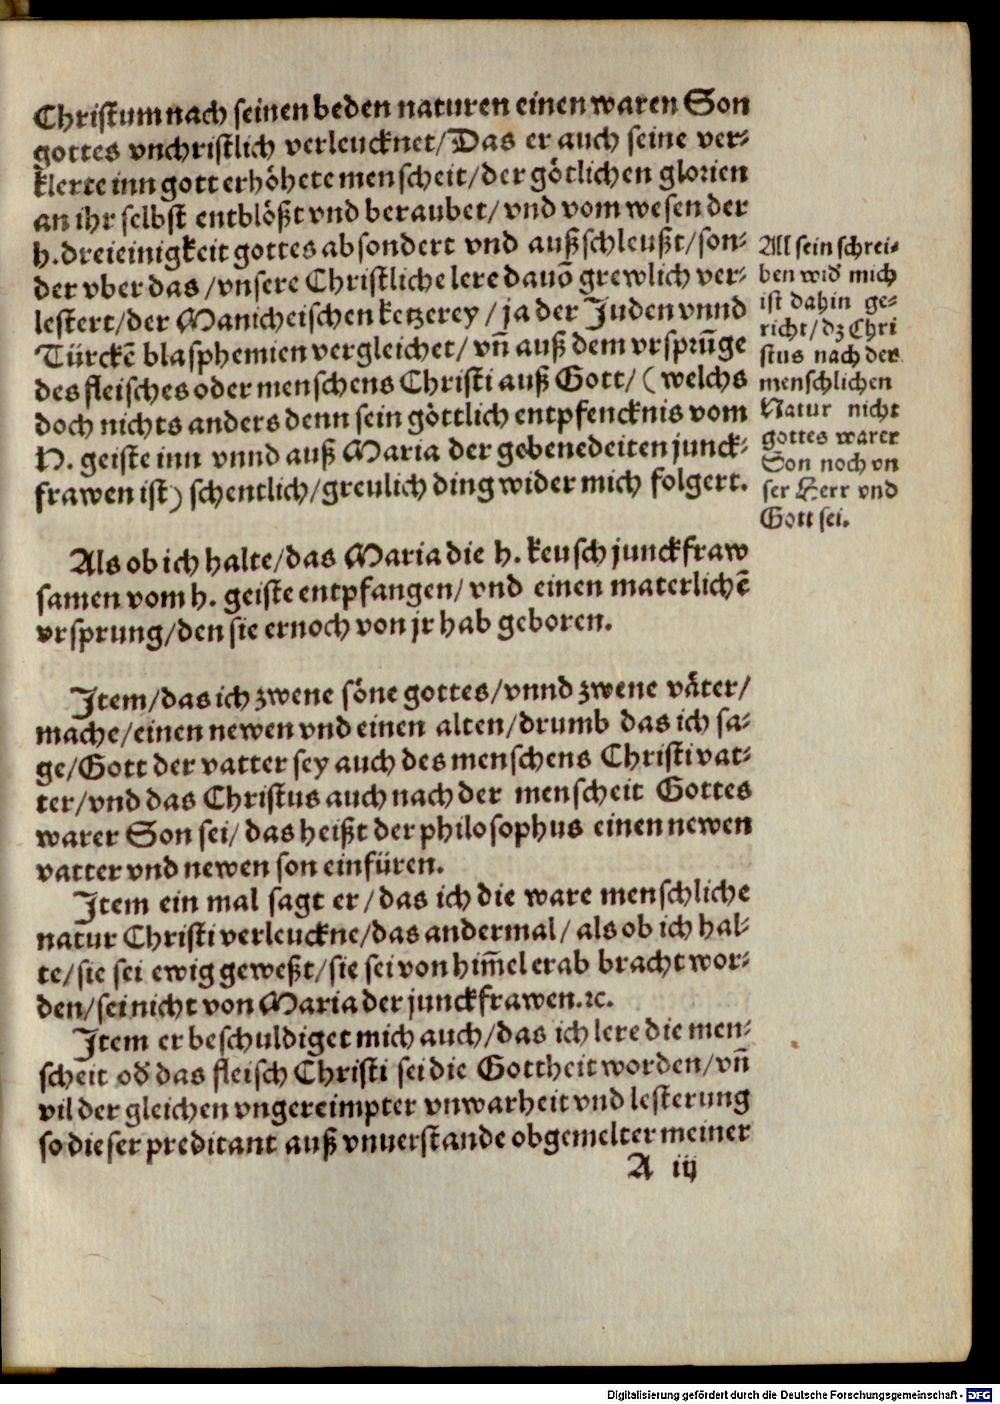 Christum nach seinen beden naturen einen waren Son
gottes vnchristlich verleucknet/Das er auch seine ver-
klerte inn gott erhöhete menscheit/der götlichen glorien
an ihr selbst entblößt vnd beraubet/ vnd vom wesen der
h. dreieinigkeit gottes absondert vnd außschleußt/son-
der vber das /vnsere Christliche lere dauō grewlich ver-
lestert/der Manicheischen ketzerey / ja der Juden vnnd
Türckē blasphemien vergleichet/ vn̄ auß dem vrsprūge
des fleisches oder menschens Christi auß Gott/ ( welchs
doch nichts anders denn sein göttlich entpfencknis vom
H. geiste inn vnnd auß Maria der gebenedeiten junck-
frawen ist) schentlich/greulich ding wider mich folgert.
All sein schrei-
ben wid mich
ist dahin ge-
richt/dz Chri
stus nach der
menschlichen
Natur nicht
gottes warer
Son noch vn
ser Herr vnd
Gott sei.
Als ob ich halte/das Maria die h. keusch junckfraw
samen vom h. geiste entpfangen/ vnd einen materlichē
vrsprung/den sie ernoch von jr hab geboren.
Item/das ich zwene söne gottes/vnnd zwene väter/
mache/einen newen vnd einen alten/drumb das ich sa-
ge/Gott der vatter sey auch des menschens Christi vat-
ter/vnd das Christus auch nach der menscheit Gottes
warer Son sei/ das heißt der philosophus einen newen
vatter vnd newen son einfüren.
Item ein mal sagt er/das ich die ware menschliche
natur Christi verleuckne/das andermal/ als ob ich hal-
te/sie sei ewig geweßt/sie sei von him̄el erab bracht wor-
den/sei nicht von Maria der junckfrawen.ꝛc.
Item er beschuldiget mich auch/das ich lere die men-
scheit od das fleisch Christi sei die Gottheit worden/vn̄
vil der gleichen vngereimpter vnwarheit vnd lesterung
so dieser preditant auß vnuerstande obgemelter meiner
A iij
Digitalisierung gefördert durch die Deutsche Forschungsgemeinschaft - DFG